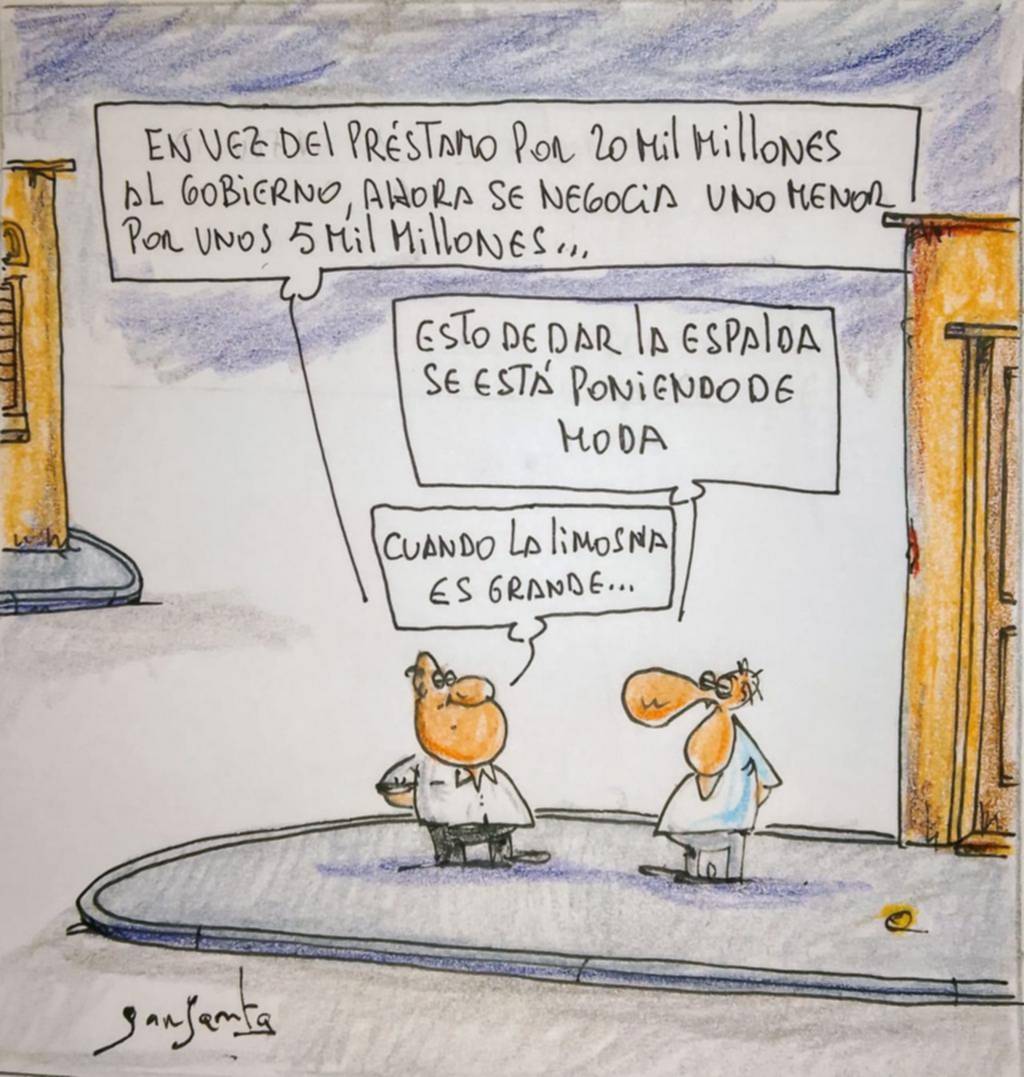 EN VEZ DEL PRÉSTAMO POR 20 MIL MILLONES
AL GOBIERNO, AHORA SE NEGOCIA UNO MENOR
POR UNOS 5 MIL MILLONES...
ESTO DE DAR LA ESPALDA
SE ESTÁ PONIENDO DE
MODA
CUANDO LA LIMOSNA
ES GRANDE...
garganta